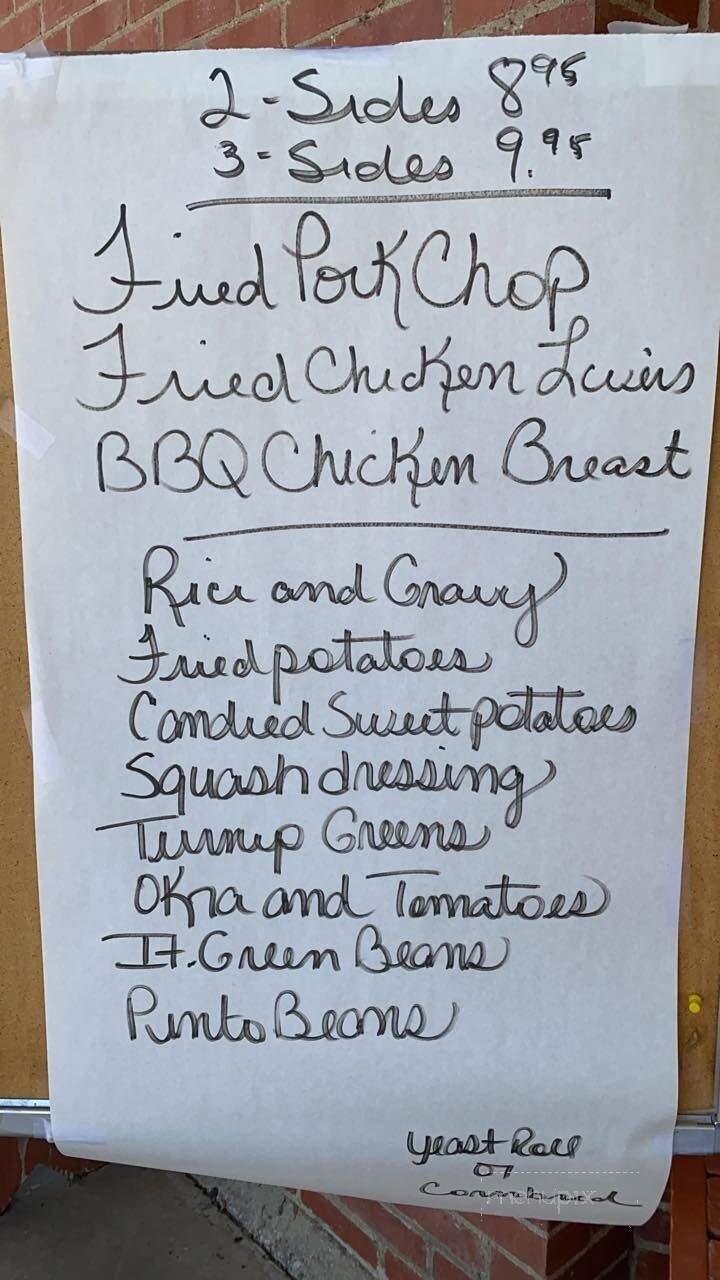 2-Sides 8 95
3-Sides 9.95
Fried Pork Chop
Fried Chicken Livers
BBQ Chicken Breast
Rice and Gravy
Fried potatoes
Candied Sweet potatoes
Squash dressing
Turnip Greens
Okra and Tomatoes
It. Green Beans
Pinto Beans
Yeast Roll
or
Cornbread
menupix